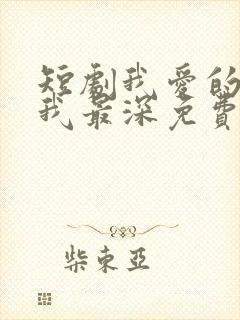 短劇我愛的
我最深免費
柴東亞